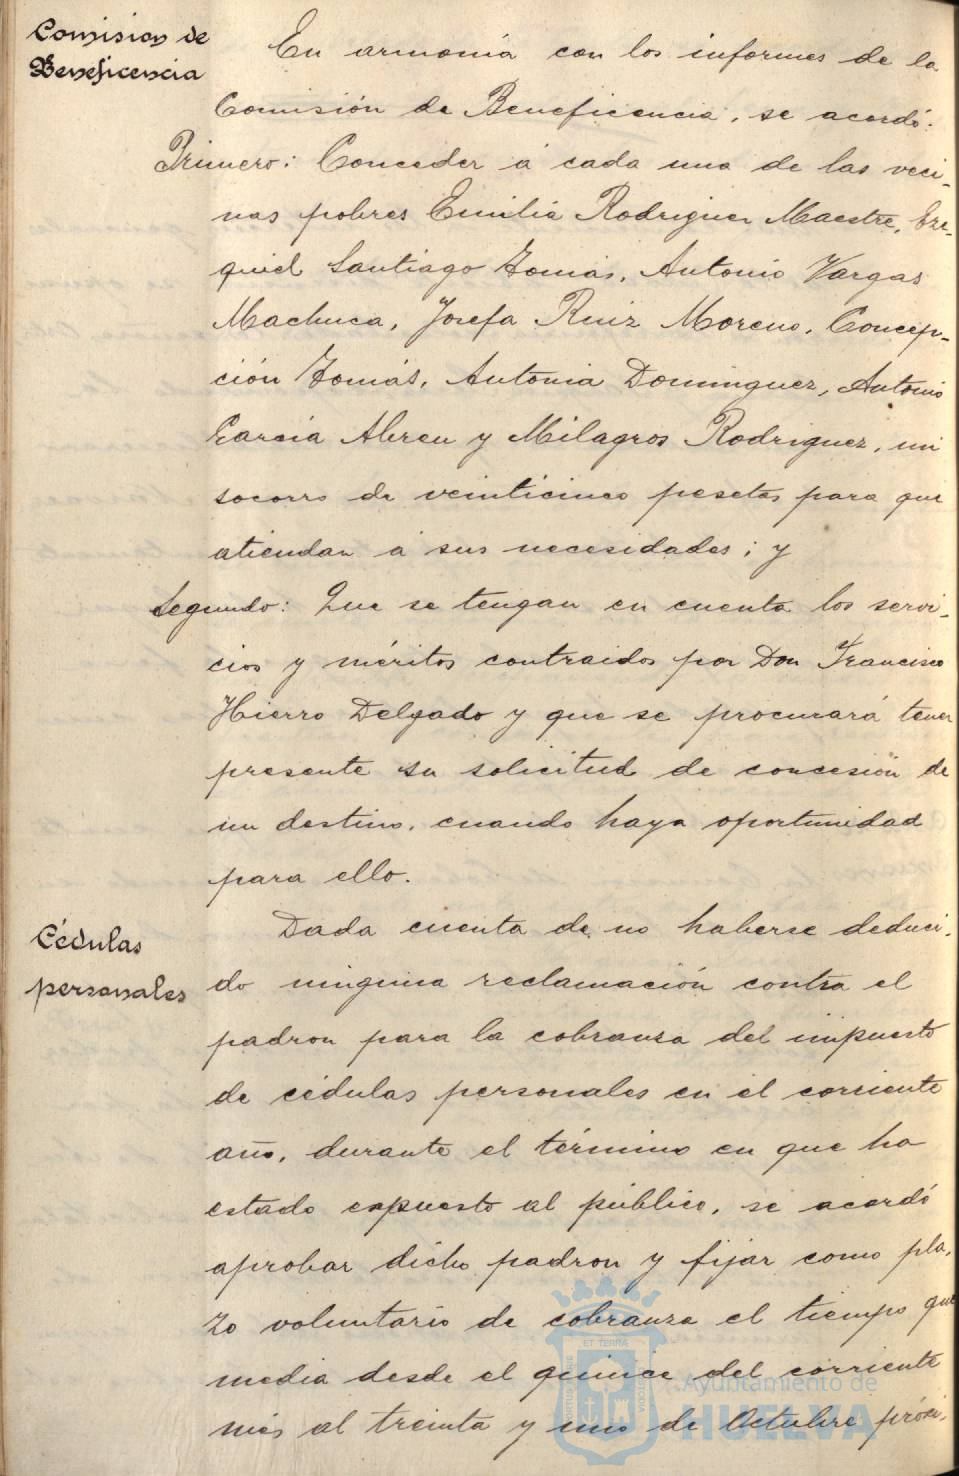 Comision de
Beneficencia
En armonía con los informes de la
Comisión de Beneficencia, se acordó:
Primero: Conceder á cada una de las veci-
nas pobres Emilia Rodriguez Maestre, Eze-
quiel Santiago Tomás, Antonio Vargas
Machuca, Josefa Ruiz Moreno, Concep-
ción Tomás, Antonia Dominguez, Antonio
Garcia Abreu y Milagros Rodriguez, un
socorro de veinticinco pesetas para que
atiendan á sus necesidades; y
Segundo: Que se tengan en cuenta los servi-
cios y méritos contraidos por Don Francisco
Hierro Delgado y que se procurará tener
presente su solicitud de concesión de
un destino, cuando haya oportunidad
para ello.
Cédulas
personales
Dada cuenta de no haberse deduci-
do ninguna reclamación contra el
padron para la cobranza del impuesto
de cédulas personales en el corriente
año, durante el término en que ha
estado expuesto al público, se acordó
aprobar dicho padron y fijar como pla-
zo voluntario de cobranza el tiempo que
media desde el quince del corriente
mes al treinta y uno de Octubre próxi-
ET TERRA
Ayuntamiento de
HUELVA